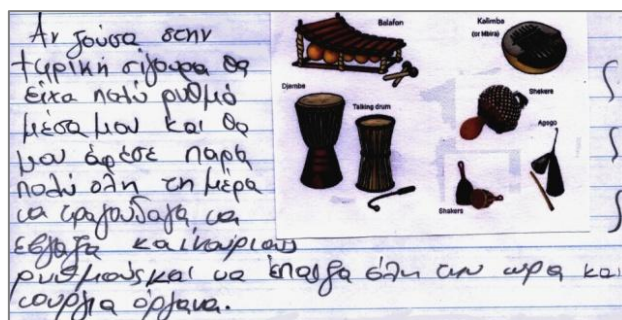 Αν ζούσα στην
Αφρική σίγουρα θα
είχα πολύ ρυθμό
μέσα μου και θα
μου άρεσε παρα
πολύ όλη τη μέρα
να τραγουδαγα να
εβγαζα καινούριους
ρυθμούς και να έπαιζα όλη την ωρα και
νουργια όργανα.
Balafon
Kalimba
(or Mbira)
Djembe
Talking drum
Shekere
Apogo
Shakers